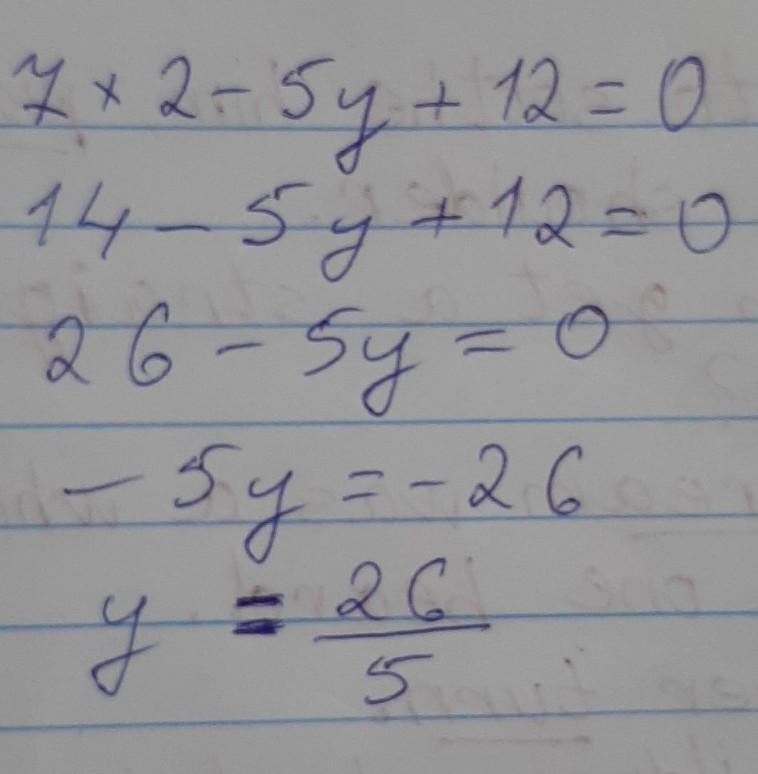 7 × 2 - 5y + 12 = 0
14 - 5y + 12 = 0
26 - 5y = 0
- 5y = -26
y = 26/5